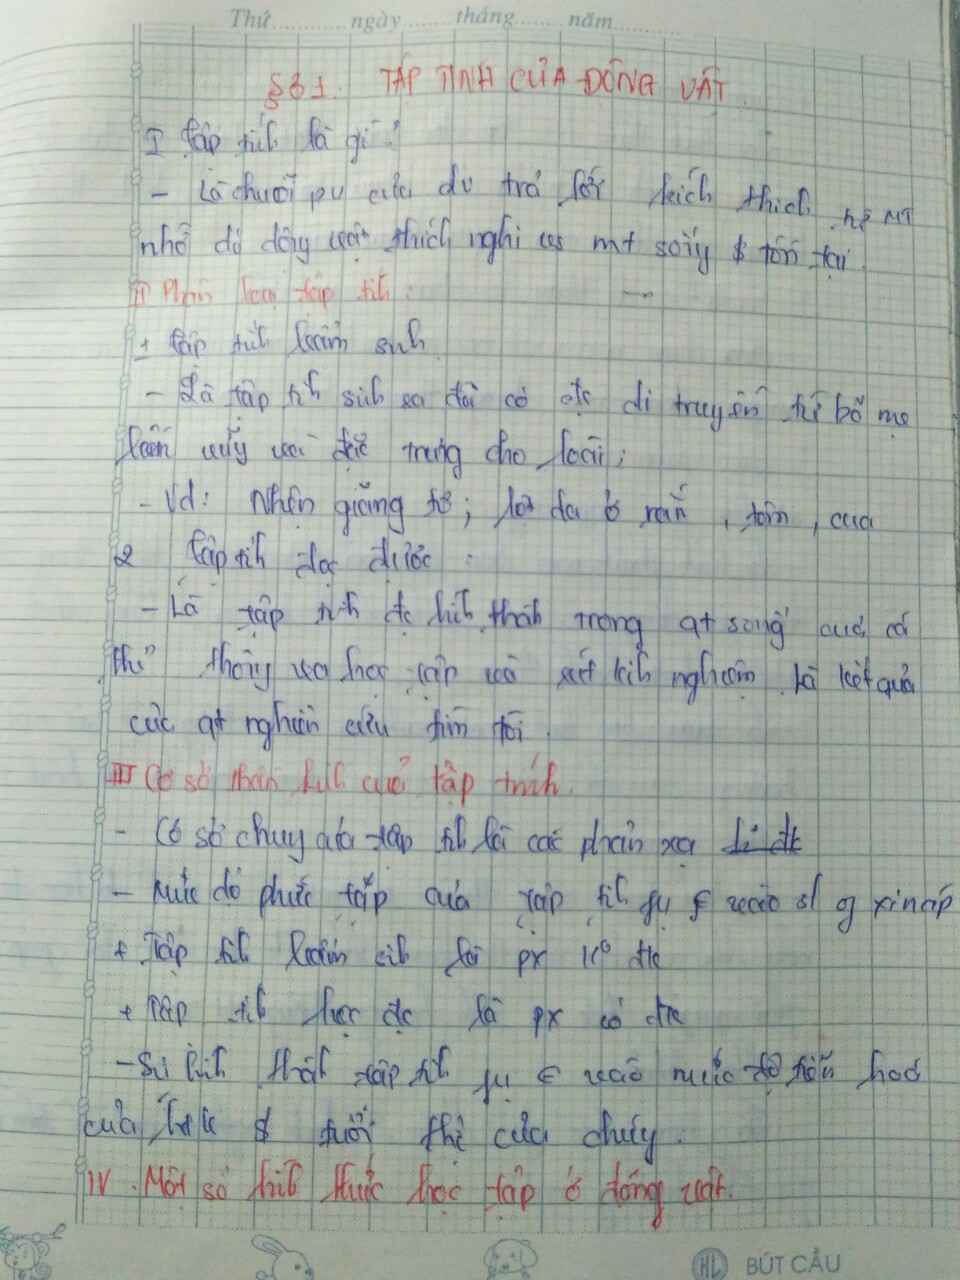 Thứ............ngày.......tháng.......năm............
§31. TẬP TÍNH CỦA ĐỘNG VẬT
I Tập tíh là gì?
- Là chuỗi pư của đv trả lời kích thích từ MT
nhờ đó động vật thích nghi vs mt sống $ tồn tại.
II Phân loại tập tíh:
1 Tập tíh bẩm sih
- Là tập tíh sih ra đã có đc di truyền từ bố mẹ
đặc trưng cho loài;
- Vd: Nhện giăng tơ; lột da ở rắn, tôm, cua
2 Tập tíh học được:
- Là tập tíh đc hìh thàh trong qt sống của cá
thể thông qua học tập và rút kih nghiệm. Là kết quả
của qt nghiên cứu tìm tòi.
III Cơ sở thần kih của tập tính.
- Cơ sở của tập tíh là các phản xạ đk
- Mức độ phức tạp của tập tíh fụ € vào sl xináp
+ Tập tíh bẩm sih là px k⁰ đk
+ Tập tíh học đc là px có đk
- Sự hìh thàh tập tíh fụ € vào mức độ tiến hoá
của htk $ tuổi thọ của chúng.
IV. Một số hìh thức học tập ở động vật.
HL BÚT CẦU